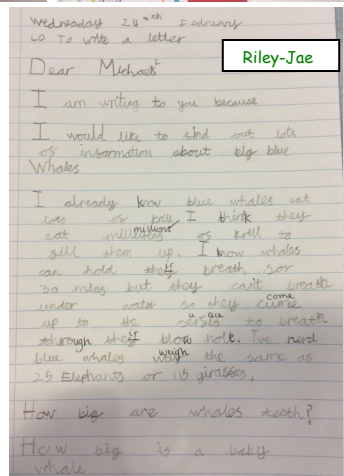 Wednesday 24th Febuary
LO To write a letter
Riley-Jae
Dear Michael
I am writing to you because
I would like to find out lots
of information about big blue
Whales
I already know blue whales eat
lots of krill I think they
eat millions of krill to
fill them up. I know whales
can hold their breath for
30 mins but they can't breath
under water so they come
up to the surface to breath
through their blow hole. I've herd
blue whales weigh the same as
25 Elephants or 115 giraffes.
How big are whales teeth?
How big is a baby
whale